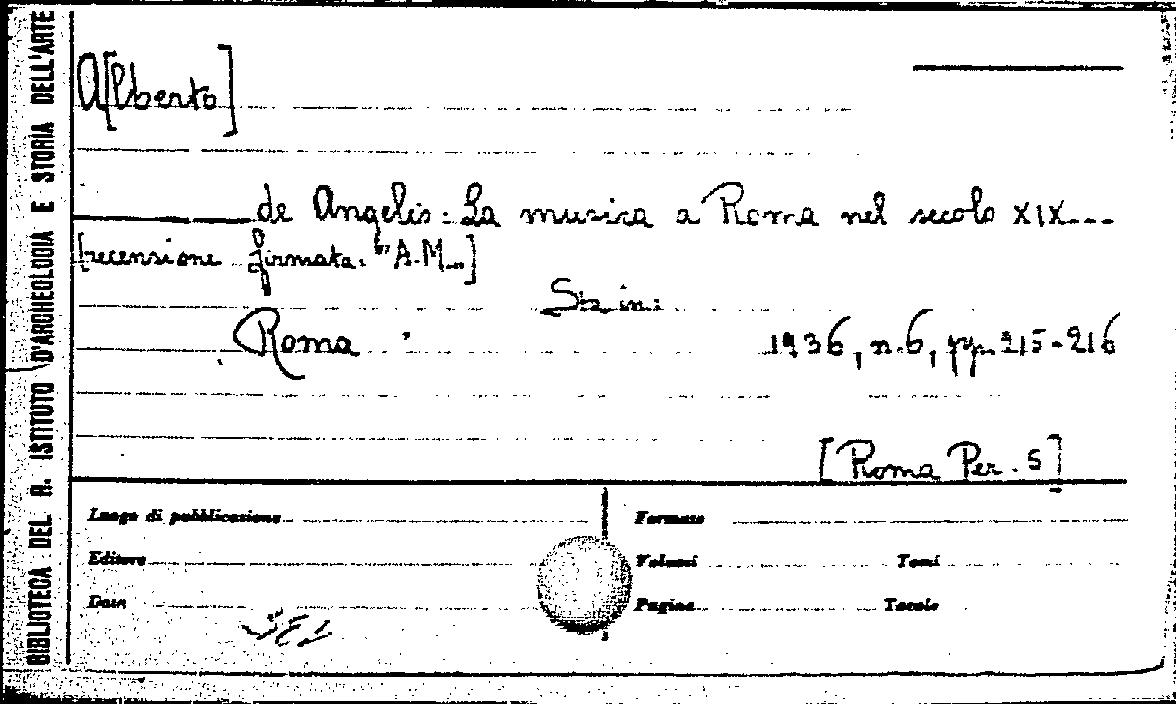 BIBLIOTECA DEL R. ISTITUTO D'ARCHEOLOGIA E STORIA DELL'ARTE
A[lberto]
de Angelis: La musica a Roma nel secolo XIX...
[recensione firmata: "A.M."]
Sta in:
Roma 1936, n.6, pp. 215-216
[Roma Per. 5]
Luogo di pubblicazione
Formato
Editore
Volumi
Tomi
Data
Pagine
Tavole